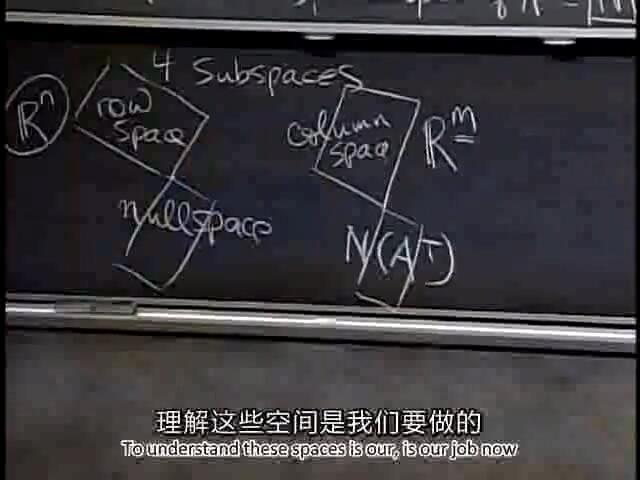 4 Subspaces
Rⁿ
row
space
column
space
Rᵐ
nullspace
N(AT)
理解这些空间是我们要做的
To understand these spaces is our, is our job now